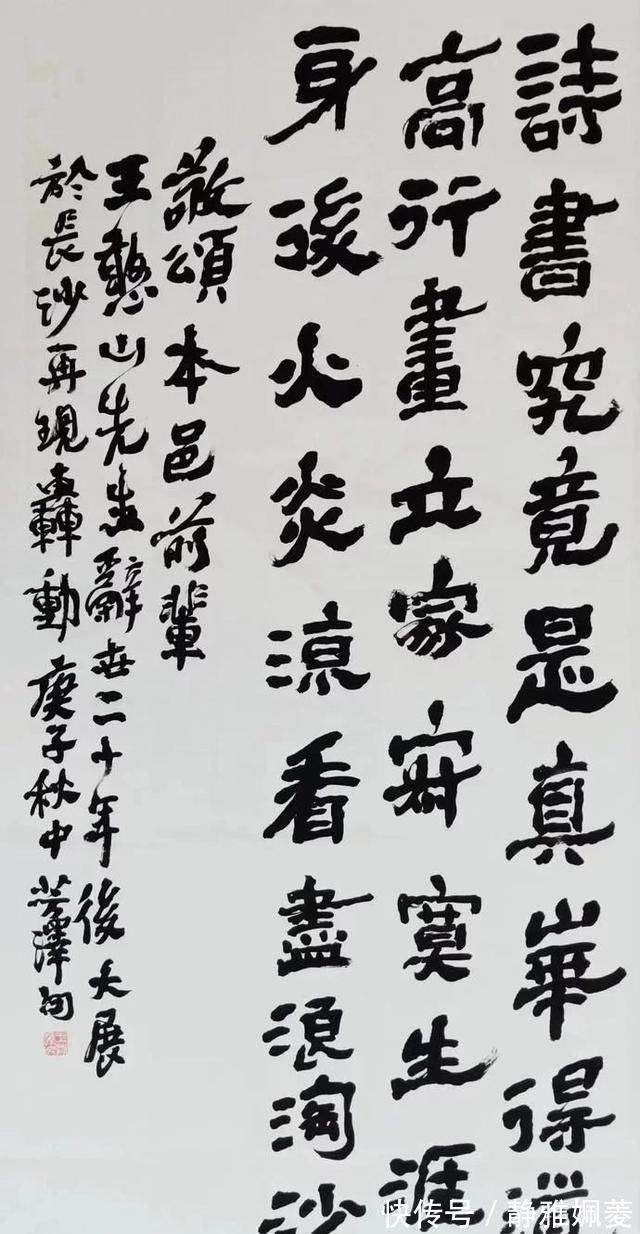 詩書究竟是真華得
高行畫立家寂寞生涯
身後火炎涼看盡浪淘沙
敬頌本邑前輩
王憨山先生辭世二十年後大展
於長沙再現轟動庚子秋中澤
快传号/静雅姵菱